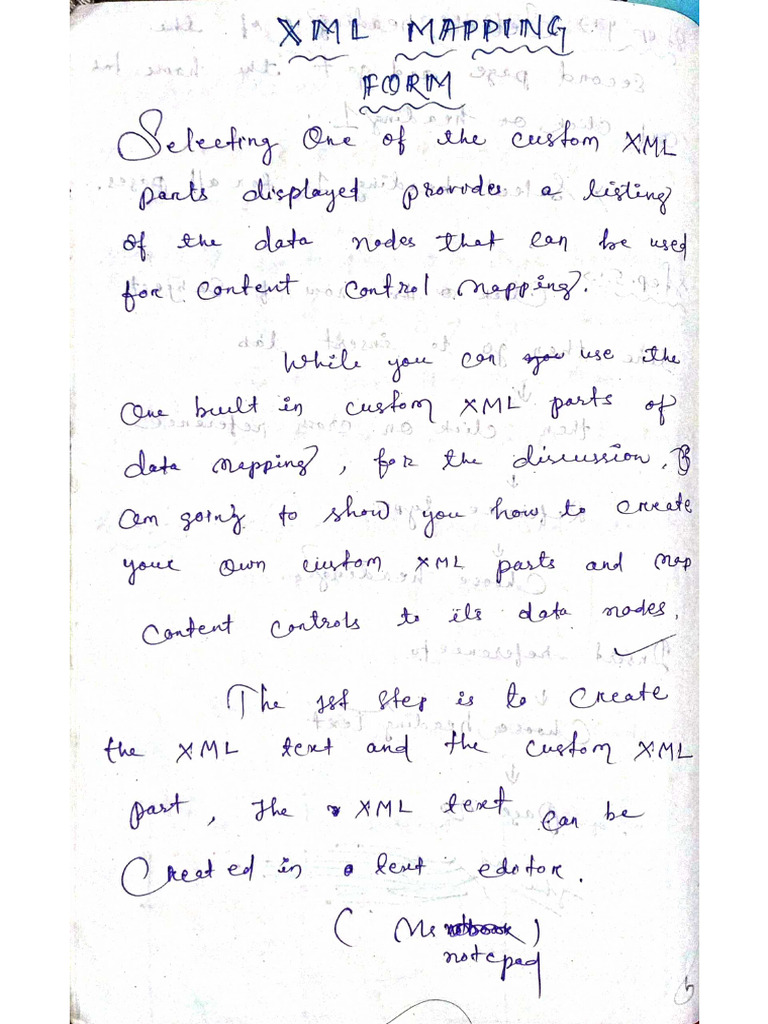 XML MAPPING
FORM
Selecting One of the custom XML
parts displayed provides a listing
of the data nodes that can be used
for content control mapping.
While you can you use the
one built in custom XML parts of
data mapping, for the discussion, I
am going to show you how to create
your own custom XML parts and map
content controls to its data nodes.
The 1st step is to create
the XML text and the custom XML
part, the XML text can be
Created in a text edotor.
(Ms notepad)